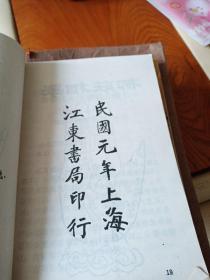 民國元年上海
江東書局印行
18